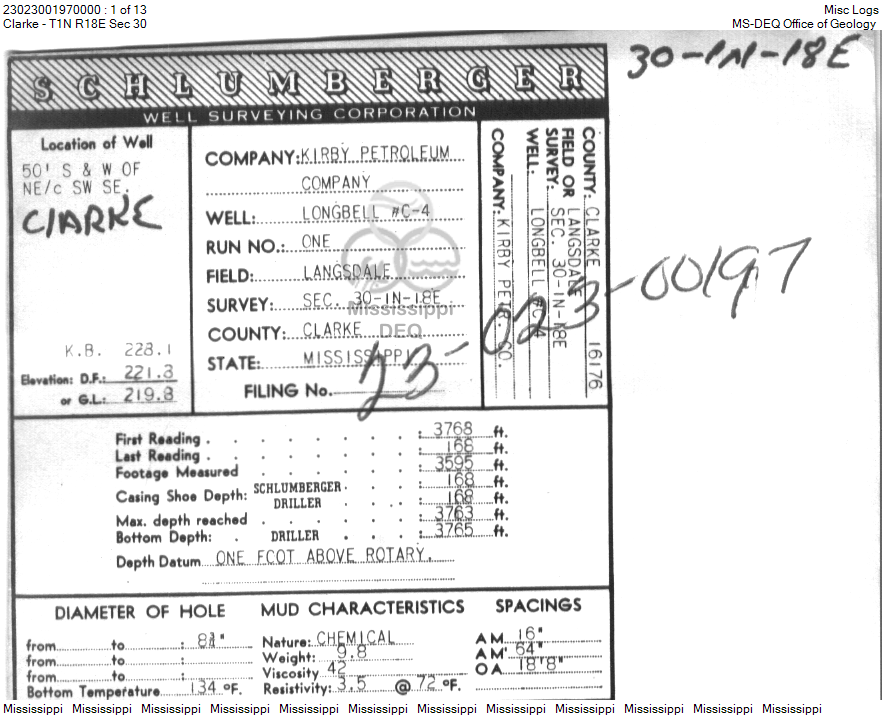 23023001970000 : 1 of 13
Misc Logs
Clarke - T1N R18E Sec 30
MS-DEQ Office of Geology
30-1N-18E
SCHLUMBERGER
WELL SURVEYING CORPORATION
Location of Well
50' S & W OF
NE/c SW SE.
CLARKE
K.B. 223.1
Elevation: D.F.: 221.3
or G.L.: 219.8
COMPANY: KIRBY PETROLEUM
COMPANY
WELL: LONGBELL #C-4
RUN NO.: ONE
FIELD: LANGSDALE
SURVEY: SEC. 30-1N-18E
COUNTY: CLARKE
STATE: MISSISSIPPI
FILING No.
Mississippi
DEQ
COUNTY: CLARKE 16176
FIELD OR LANGSDALE
SURVEY: SEC. 30-1N-18E
WELL: LONGBELL #C-4
COMPANY: KIRBY PETR. CO.
23-023-00197
First Reading : 3768 ft.
Last Reading : 168 ft.
Footage Measured : 3595 ft.
Casing Shoe Depth: SCHLUMBERGER : 168 ft.
DRILLER : 168 ft.
Max. depth reached : 3763 ft.
Bottom Depth: DRILLER : 3765 ft.
Depth Datum ONE FCOT ABOVE ROTARY.
DIAMETER OF HOLE
from to : 8¾"
from to :
from to :
from to :
Bottom Temperature 134 °F.
MUD CHARACTERISTICS
Nature: CHEMICAL
Weight: 9.8
Viscosity 42
Resistivity: 3.5 @ 72 °F.
SPACINGS
AM 16"
AM' 64"
OA 18'8"
Mississippi Mississippi Mississippi Mississippi Mississippi Mississippi Mississippi Mississippi Mississippi Mississippi Mississippi Mississippi